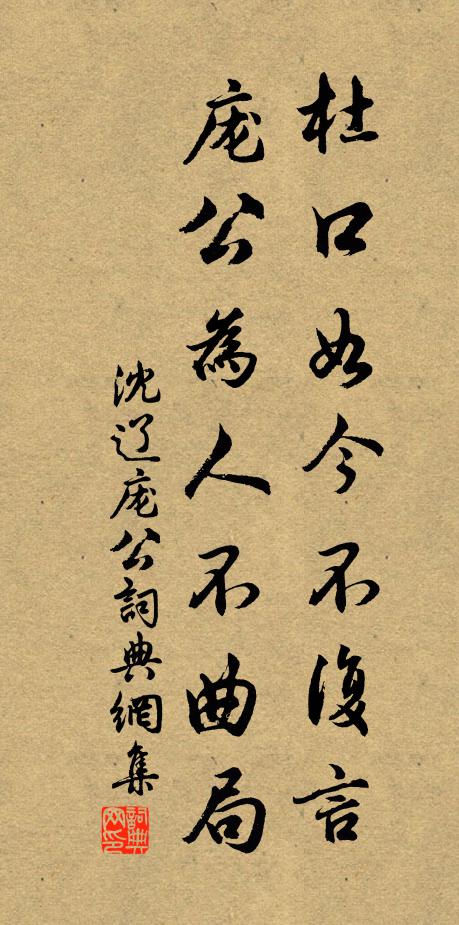 杜口如今不復言
庞公為人不曲局
沈辽庞公詞典網集
詞典網印